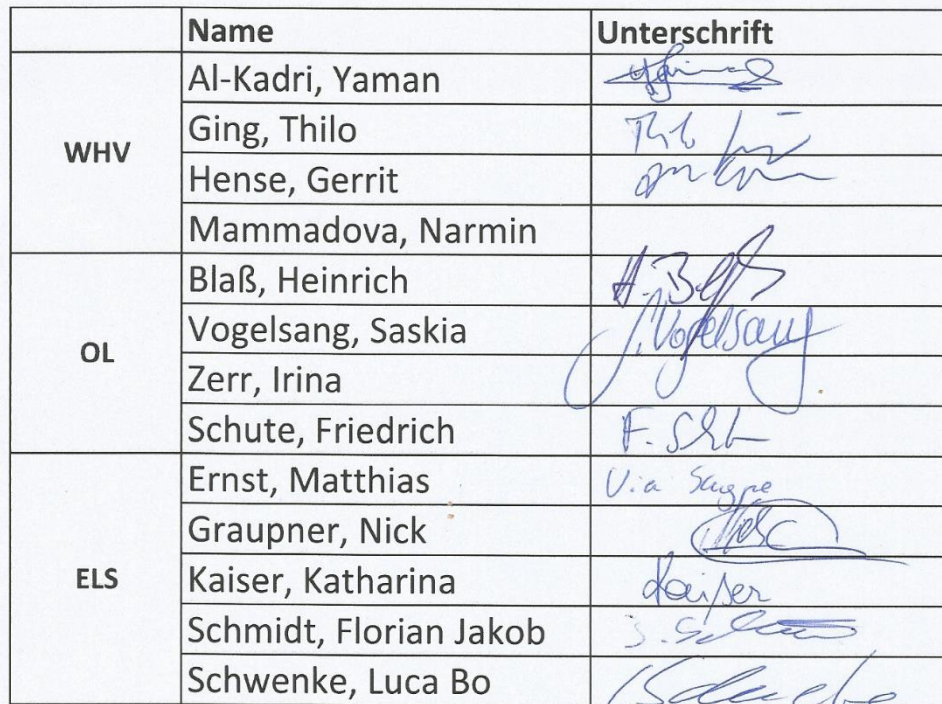 Name Unterschrift
WHV
Al-Kadri, Yaman
Ging, Thilo
Hense, Gerrit
Mammadova, Narmin
OL
Blaß, Heinrich H. Blaß
Vogelsang, Saskia S. Vogelsang
Zerr, Irina
Schute, Friedrich F. Schute
ELS
Ernst, Matthias Via
Graupner, Nick
Kaiser, Katharina Kaiser
Schmidt, Florian Jakob
Schwenke, Luca Bo